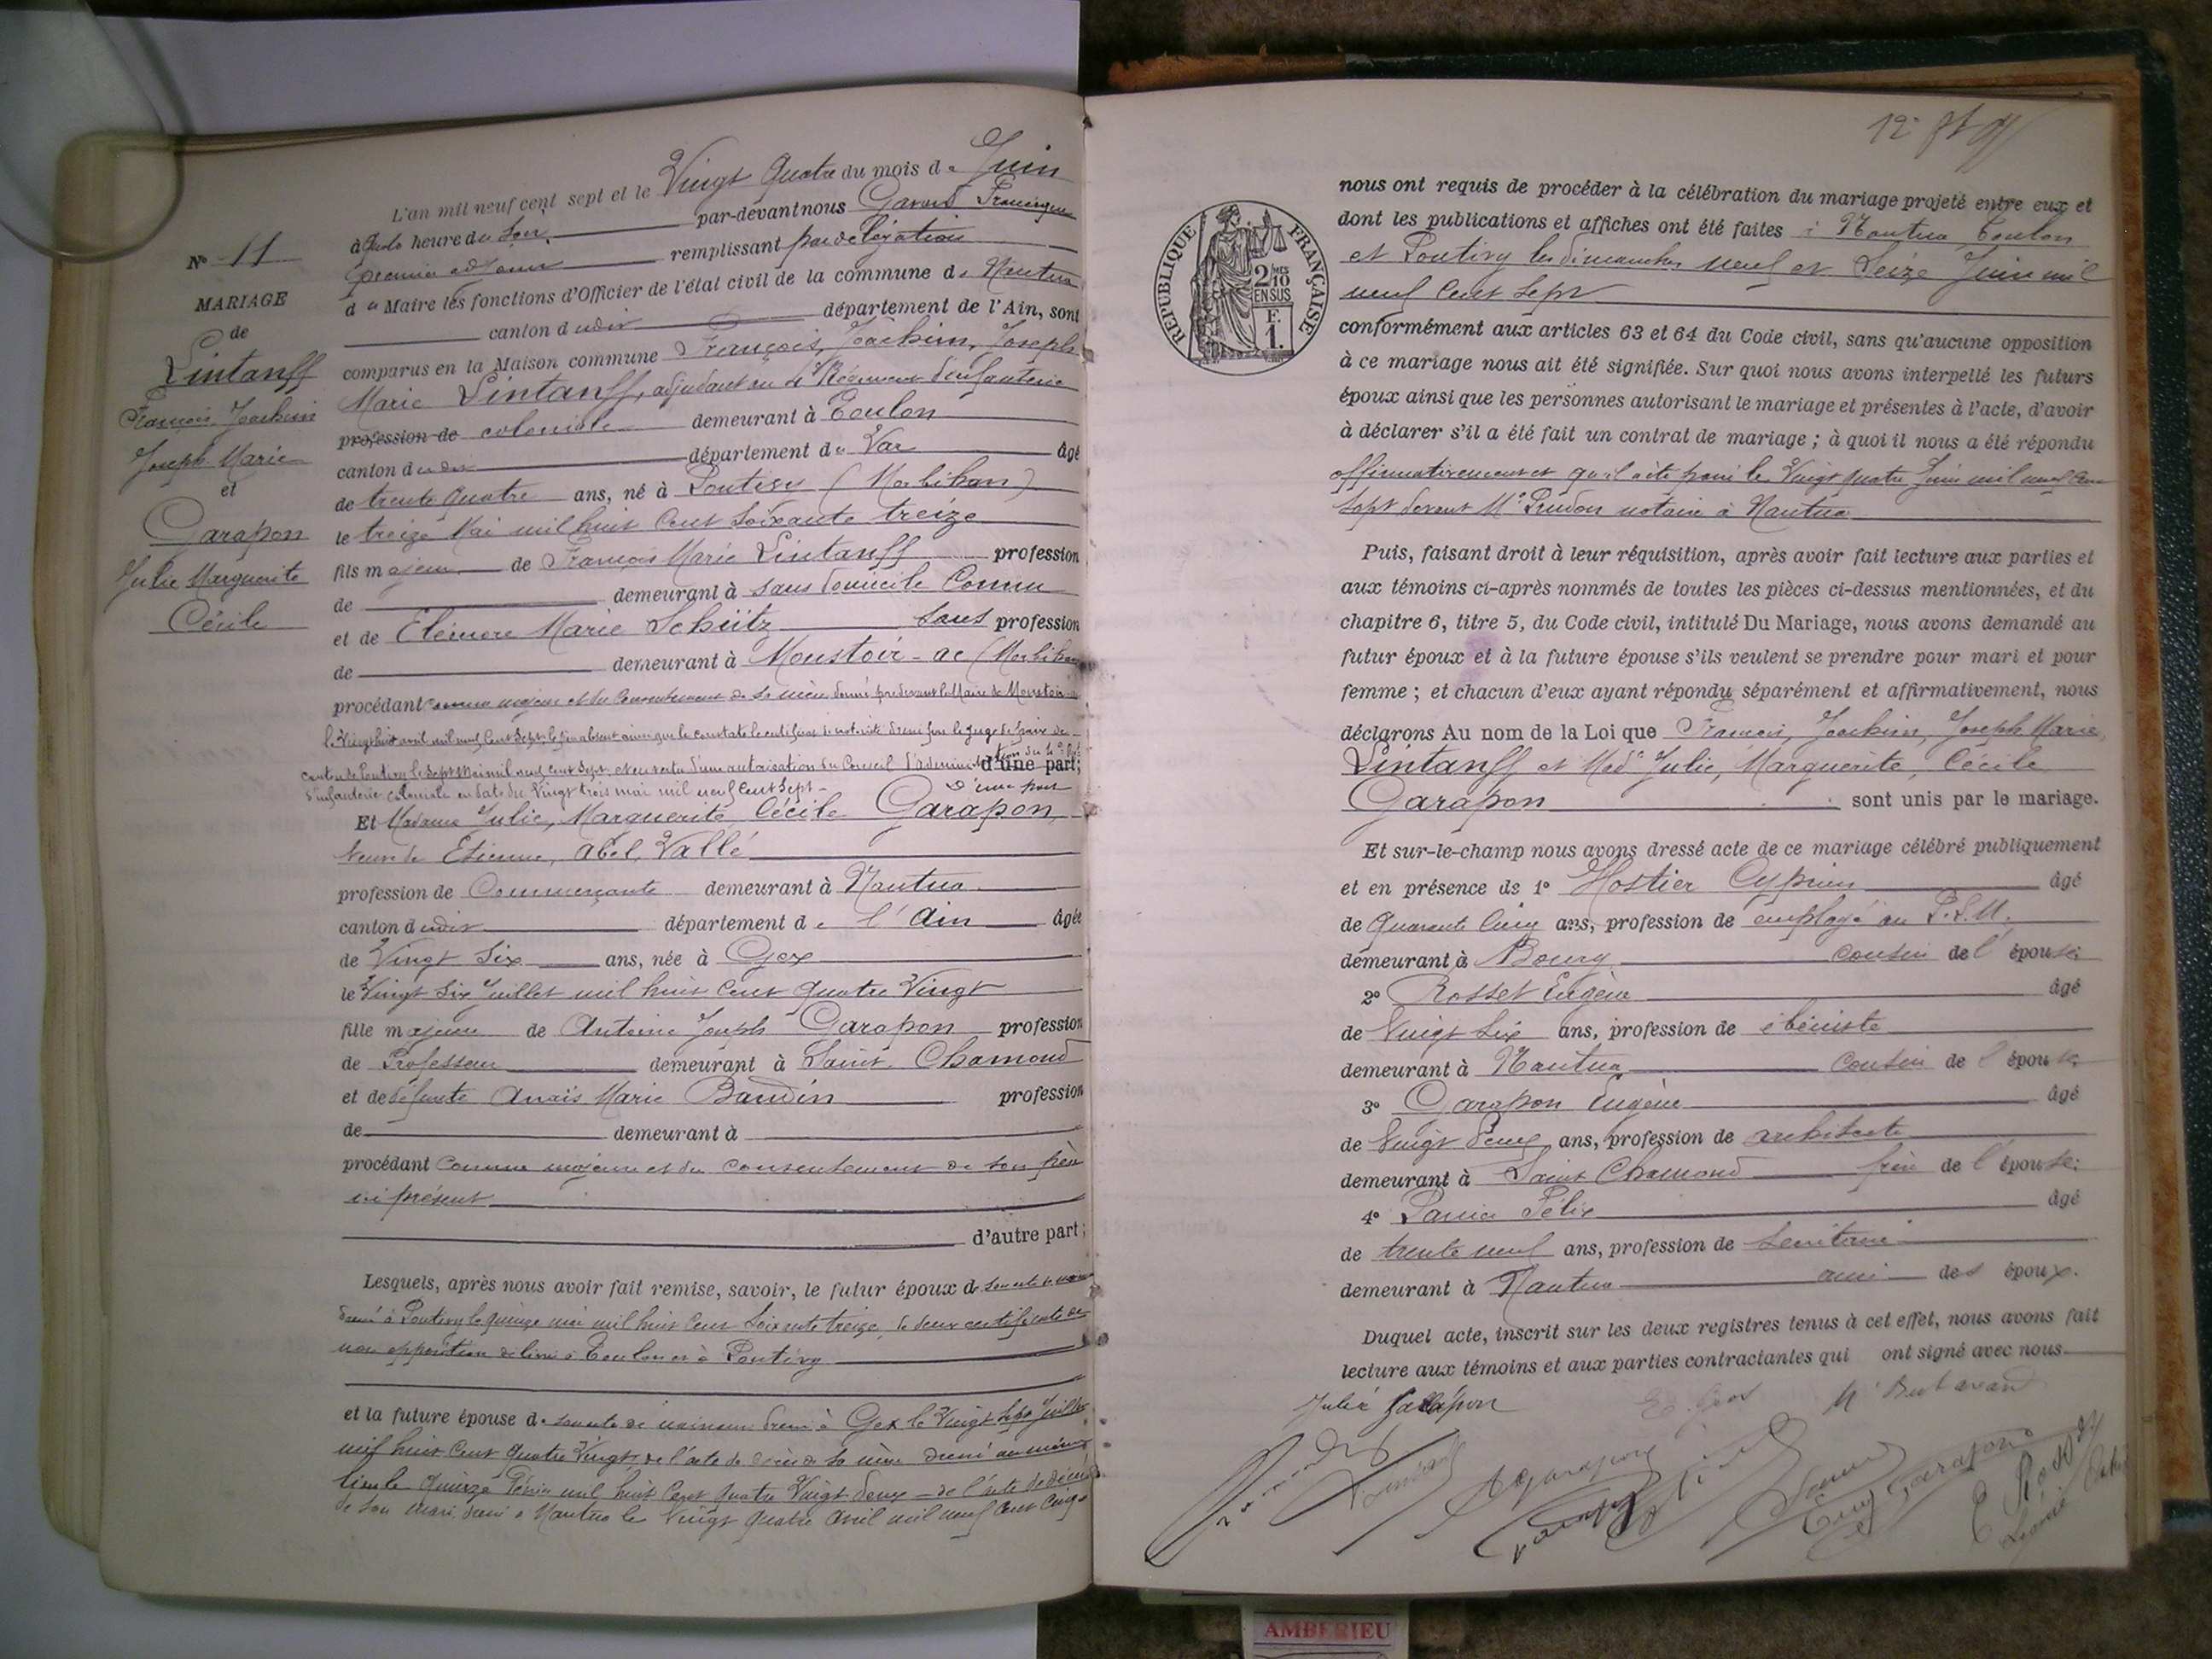 L'an mil neuf cent sept et le Vingt Quatre du mois de Juin
à heure du Soir, par-devant nous
premier adjoint remplissant par délégation
du Maire les fonctions d'Officier de l'état civil de la commune de Nantua
canton dudit département de l'Ain, sont
comparus en la Maison commune François, Joachim, Joseph
Marie Lintanff, adjudant au Régiment d'infanterie
profession de coloniale demeurant à Toulon
canton dudit département du Var âgé
de trente quatre ans, né à Pontivy (Morbihan)
le treize Mai mil huit Cent Soixante treize
fils majeur de François Marie Lintanff profession
de demeurant à sans domicile Connu
et de Eléonore Marie Schütz sans profession
de demeurant à Moustoir-ac (Morbihan
procédant comme majeur et du Consentement de sa mère donné pardevant le Maire de Moustoir-ac
le Vingt huit avril mil neuf Cent Sept, le père absent ainsi que le constate le certificat de notoriété dressé par le Juge de paix du
canton de Pontivy le Sept Mai mil neuf Cent Sept, et en vertu d'une autorisation du Conseil d'administration du 4e Régt d'une part;
d'infanterie coloniale en date du Vingt trois mai mil neuf Cent Sept - D'une part
Et Madame Julie, Marguerite, Cécile Garapon,
Veuve de Etienne, Abel, Vallé
profession de Commerçante demeurant à Nantua
canton dudit département de l'Ain âgée
de Vingt Six ans, née à Gex
le Vingt Six Juillet mil huit Cent Quatre Vingt
fille majeure de Antoine Joseph Garapon profession
de Professeur demeurant à Saint-Chamond
et de défunte Anaïs Marie Baudin profession
de demeurant à
procédant Comme majeure et du consentement de son père
ici présent
d'autre part;
Lesquels, après nous avoir fait remise, savoir, le futur époux de son acte de naissance
dressé à Pontivy le quinze mai mil huit Cent Soixante treize, de deux certificats de
non opposition délivrés à Toulon et à Pontivy
et la future épouse de son acte de naissance dressé à Gex le Vingt Sept Juillet
mil huit Cent Quatre Vingt, de l'acte de décès de sa mère dressé au même
lieu le Quinze Février mil huit Cent Quatre Vingt deux - de l'acte de décès
de son mari, dressé à Nantua le Vingt Quatre Avril mil neuf Cent Cinq
No 11
MARIAGE
de
Lintanff
François Joachim
Joseph Marie
et
Garapon
Julie Marguerite
Cécile
12e
REPUBLIQUE FRANÇAISE
2/10 MES
EN SUS
F.
1.
nous ont requis de procéder à la célébration du mariage projeté entre eux et
dont les publications et affiches ont été faites à Nantua Toulon
et Pontivy les dimanches neuf et Seize Juin mil
neuf Cent Sept
conformément aux articles 63 et 64 du Code civil, sans qu'aucune opposition
à ce mariage nous ait été signifiée. Sur quoi nous avons interpellé les futurs
époux ainsi que les personnes autorisant le mariage et présentes à l'acte, d'avoir
à déclarer s'il a été fait un contrat de mariage ; à quoi il nous a été répondu
affirmativement et qu'il a été passé le Vingt quatre Juin mil neuf Cent
Sept devant Me Prudon notaire à Nantua
Puis, faisant droit à leur réquisition, après avoir fait lecture aux parties et
aux témoins ci-après nommés de toutes les pièces ci-dessus mentionnées, et du
chapitre 6, titre 5, du Code civil, intitulé Du Mariage, nous avons demandé au
futur époux et à la future épouse s'ils veulent se prendre pour mari et pour
femme ; et chacun d'eux ayant répondu séparément et affirmativement, nous
déclarons Au nom de la Loi que François, Joachim, Joseph Marie
Lintanff et Made Julie, Marguerite, Cécile
Garapon sont unis par le mariage.
Et sur-le-champ nous avons dressé acte de ce mariage célébré publiquement
et en présence de 1o Hostier Cyprien âgé
de Quarante Cinq ans, profession de employé au P.L.M.
demeurant à Bourg cousin de l'épouse;
2o Rosset Eugène âgé
de Vingt Six ans, profession de ébéniste
demeurant à Nantua Cousin de l'épouse;
3o Garapon Eugène âgé
de Vingt deux ans, profession de architecte
demeurant à Saint Chamond frère de l'épouse;
4o Félix âgé
de trente neuf ans, profession de Secrétaire
demeurant à Nantua ami des époux.
Duquel acte, inscrit sur les deux registres tenus à cet effet, nous avons fait
lecture aux témoins et aux parties contractantes qui ont signé avec nous
Julie Garapon
Lintanff
A Garapon
Eug Garapon
E Rosset
AMBERIEU